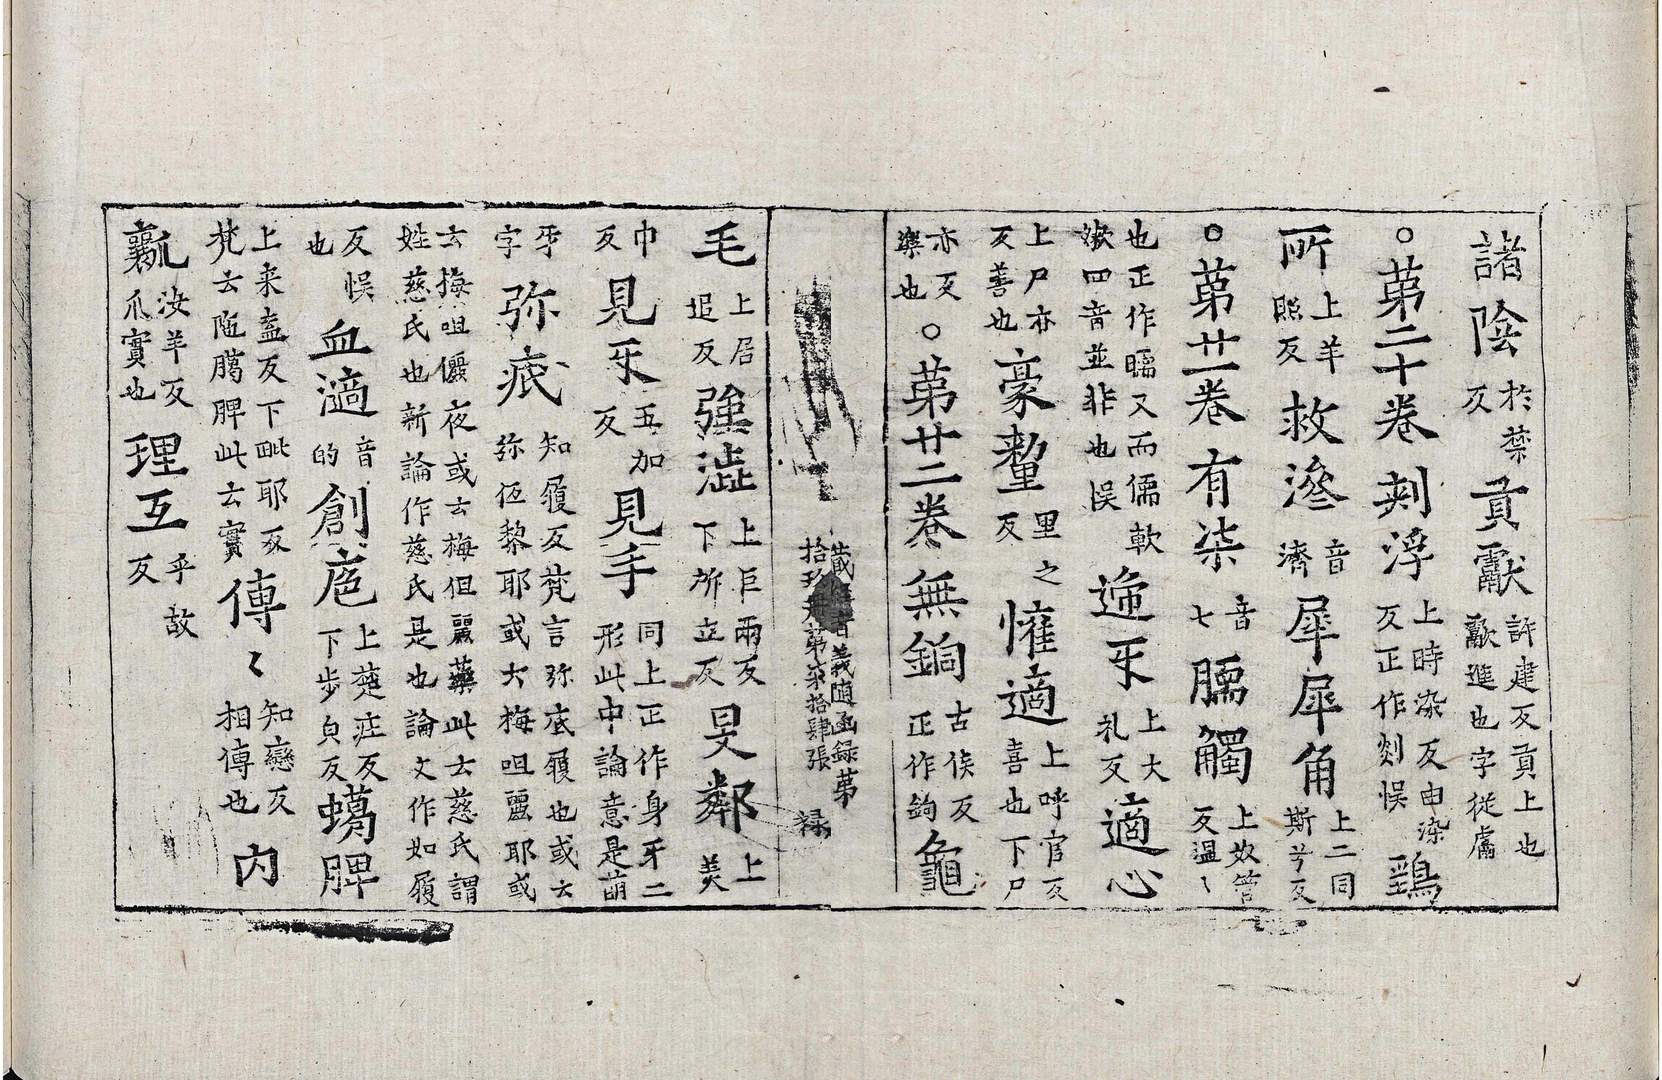 諸陰於禁反貢獻許建反貢上也獻進也字從鬳
○第二十卷剡浮上時染反由染反正作剡悮鵄
所上羊照反救滲音濟犀犀角上二同斯兮反
○第廿一卷有柒音七腝觸上奴管反温〻
也正作腝又而儒軟嫩四音並非也悮递牙上大礼反適心
上尸亦反善也豪氂里之反懽適上呼官反喜也下尸
亦反樂也○第廿二卷無鉤古侯反正作鉤龜
藏經音義随函録第拾玖冊第柒拾肆張 禄
毛上居追反強澁上巨兩反下所立反旻鄰上美
巾反見牙五加反見手同上正作身牙二形此中論意是萌
牙字弥底知履反梵言弥底履也或云弥伍黎耶或云梅咀麗耶或
云梅咀儷夜或云梅伹麗藥此云慈氏謂姓慈氏也新論作慈氏是也論文作如履
反悮也血適音的創疤上楚庄反下步皃反蠇脾
上来盍反下毗耶反梵云陁臈脾此云實傳〻知戀反相傳也内
瓤汝羊反爪實也理互乎故反